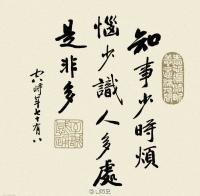 知事少時煩
惱少識人多處
是非多
時年七十有八